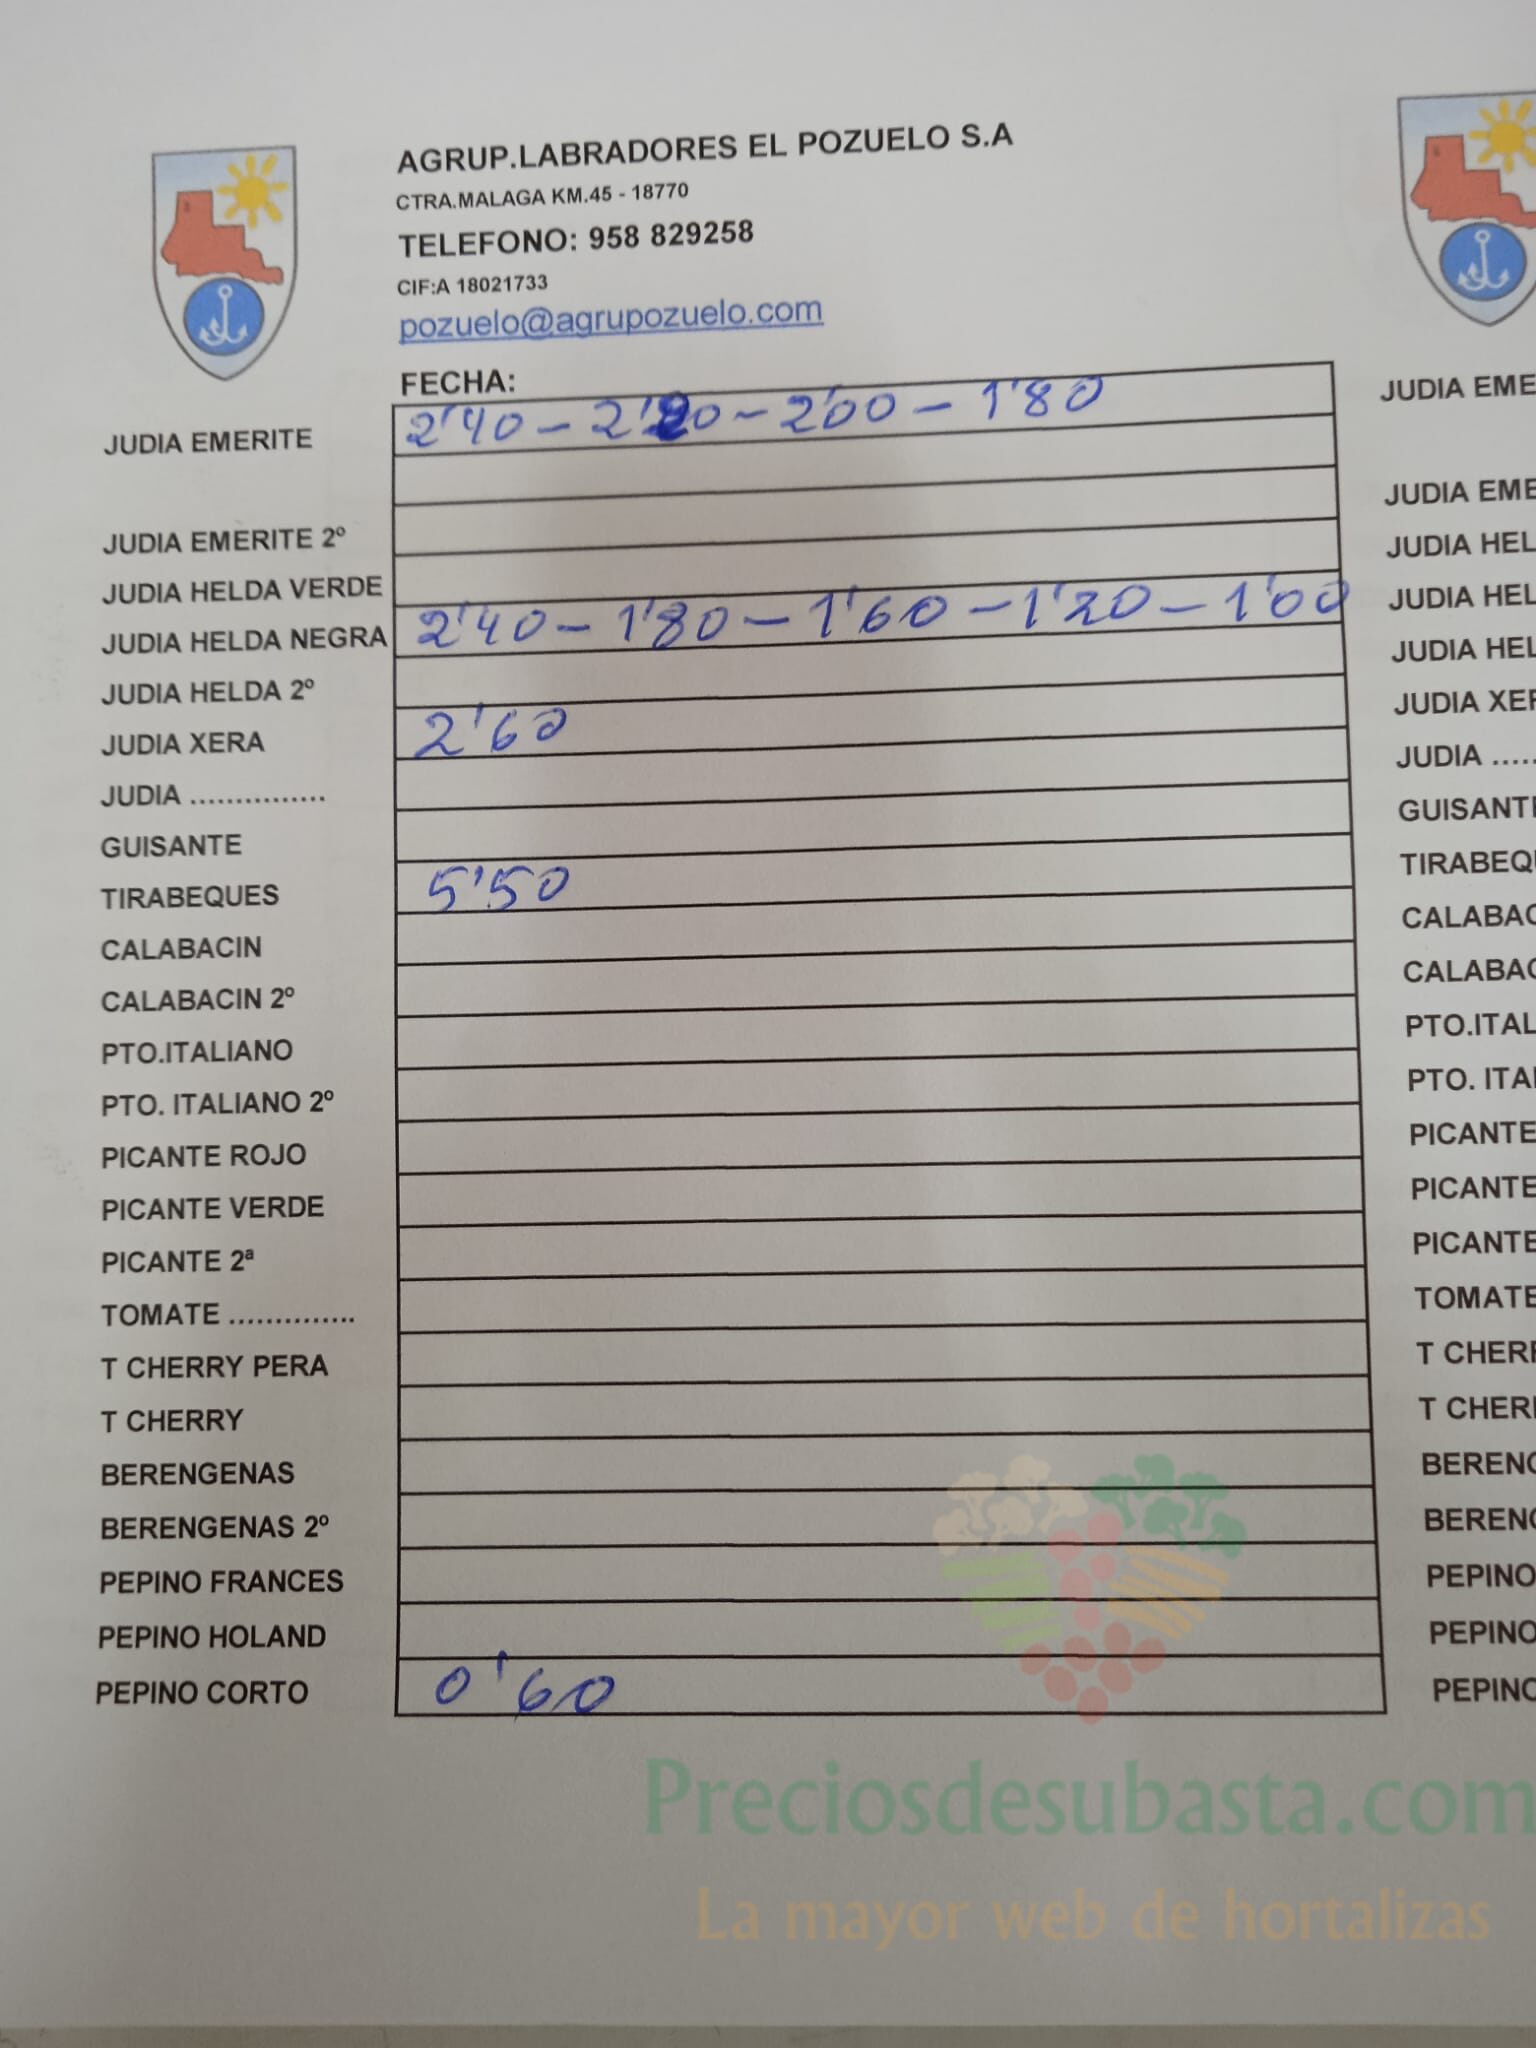 AGRUP.LABRADORES EL POZUELO S.A
CTRA.MALAGA KM.45 - 18770
TELEFONO: 958 829258
CIF:A 18021733
pozuelo@agrupozuelo.com
FECHA:
JUDIA EMERITE 2'40 - 2'20 - 2'00 - 1'80
JUDIA EMERITE 2º
JUDIA HELDA VERDE
JUDIA HELDA NEGRA 2'40 - 1'80 - 1'60 - 1'20 - 1'00
JUDIA HELDA 2º
JUDIA XERA 2'60
JUDIA ...............
GUISANTE
TIRABEQUES 5'50
CALABACIN
CALABACIN 2º
PTO.ITALIANO
PTO. ITALIANO 2º
PICANTE ROJO
PICANTE VERDE
PICANTE 2ª
TOMATE ..............
T CHERRY PERA
T CHERRY
BERENGENAS
BERENGENAS 2º
PEPINO FRANCES
PEPINO HOLAND
PEPINO CORTO 0'60
JUDIA EME
JUDIA EME
JUDIA HEL
JUDIA HEL
JUDIA HEL
JUDIA XER
JUDIA .....
GUISANTE
TIRABEQU
CALABAC
CALABAC
PTO.ITAL
PTO. ITA
PICANTE
PICANTE
PICANTE
TOMATE
T CHERR
T CHERR
BERENG
BERENG
PEPINO
PEPINO
PEPINO
Preciosdesubasta.com
La mayor web de hortalizas